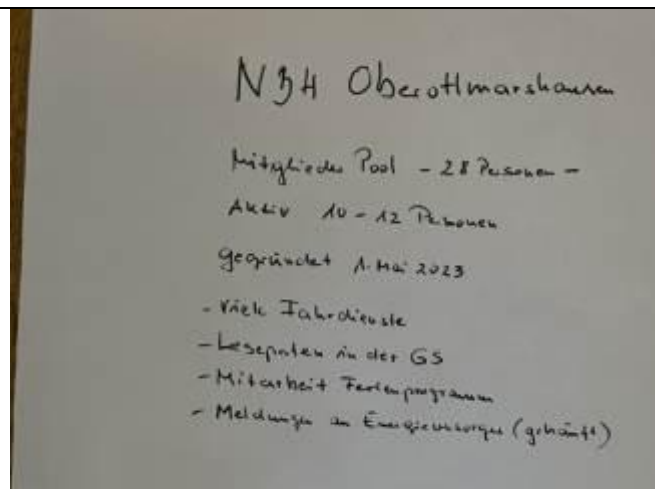 NBH Oberottmarshausen
Mitglieder Pool - 28 Personen -
Aktiv 10 - 12 Personen
Gegründet 1. Mai 2023
- Viele Fahrdienste
- Lesepaten in der GS
- Mitarbeit Ferienprogramm
- Meldungen an Energieversorger (gehäuft)